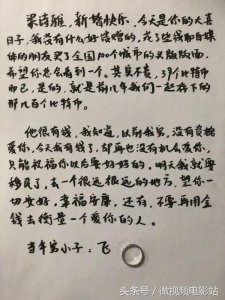 梁诗雅，新婚快乐，今天是你的大喜
日子，我没有什么好馈赠的，花了些钱和自媒
体的朋友买了全国100个城市的头版版面，
希望你总会看到一个。其实不贵，39个比特币
而已，是的，就是前几年我们一起存下的
那几百个比特币。
他很有钱，我知道，以前我穷，没有资格
爱你，今天我有钱了，却再也没有机会爱你，
只能祝福你以后要好好的。明天我就要
移民了，去一个很远很远的地方，望你一
切安好，幸福安康，还有，不要再用金
钱去衡量一个爱你的人。
当年穷小子：飞
头条号/微视频电影站